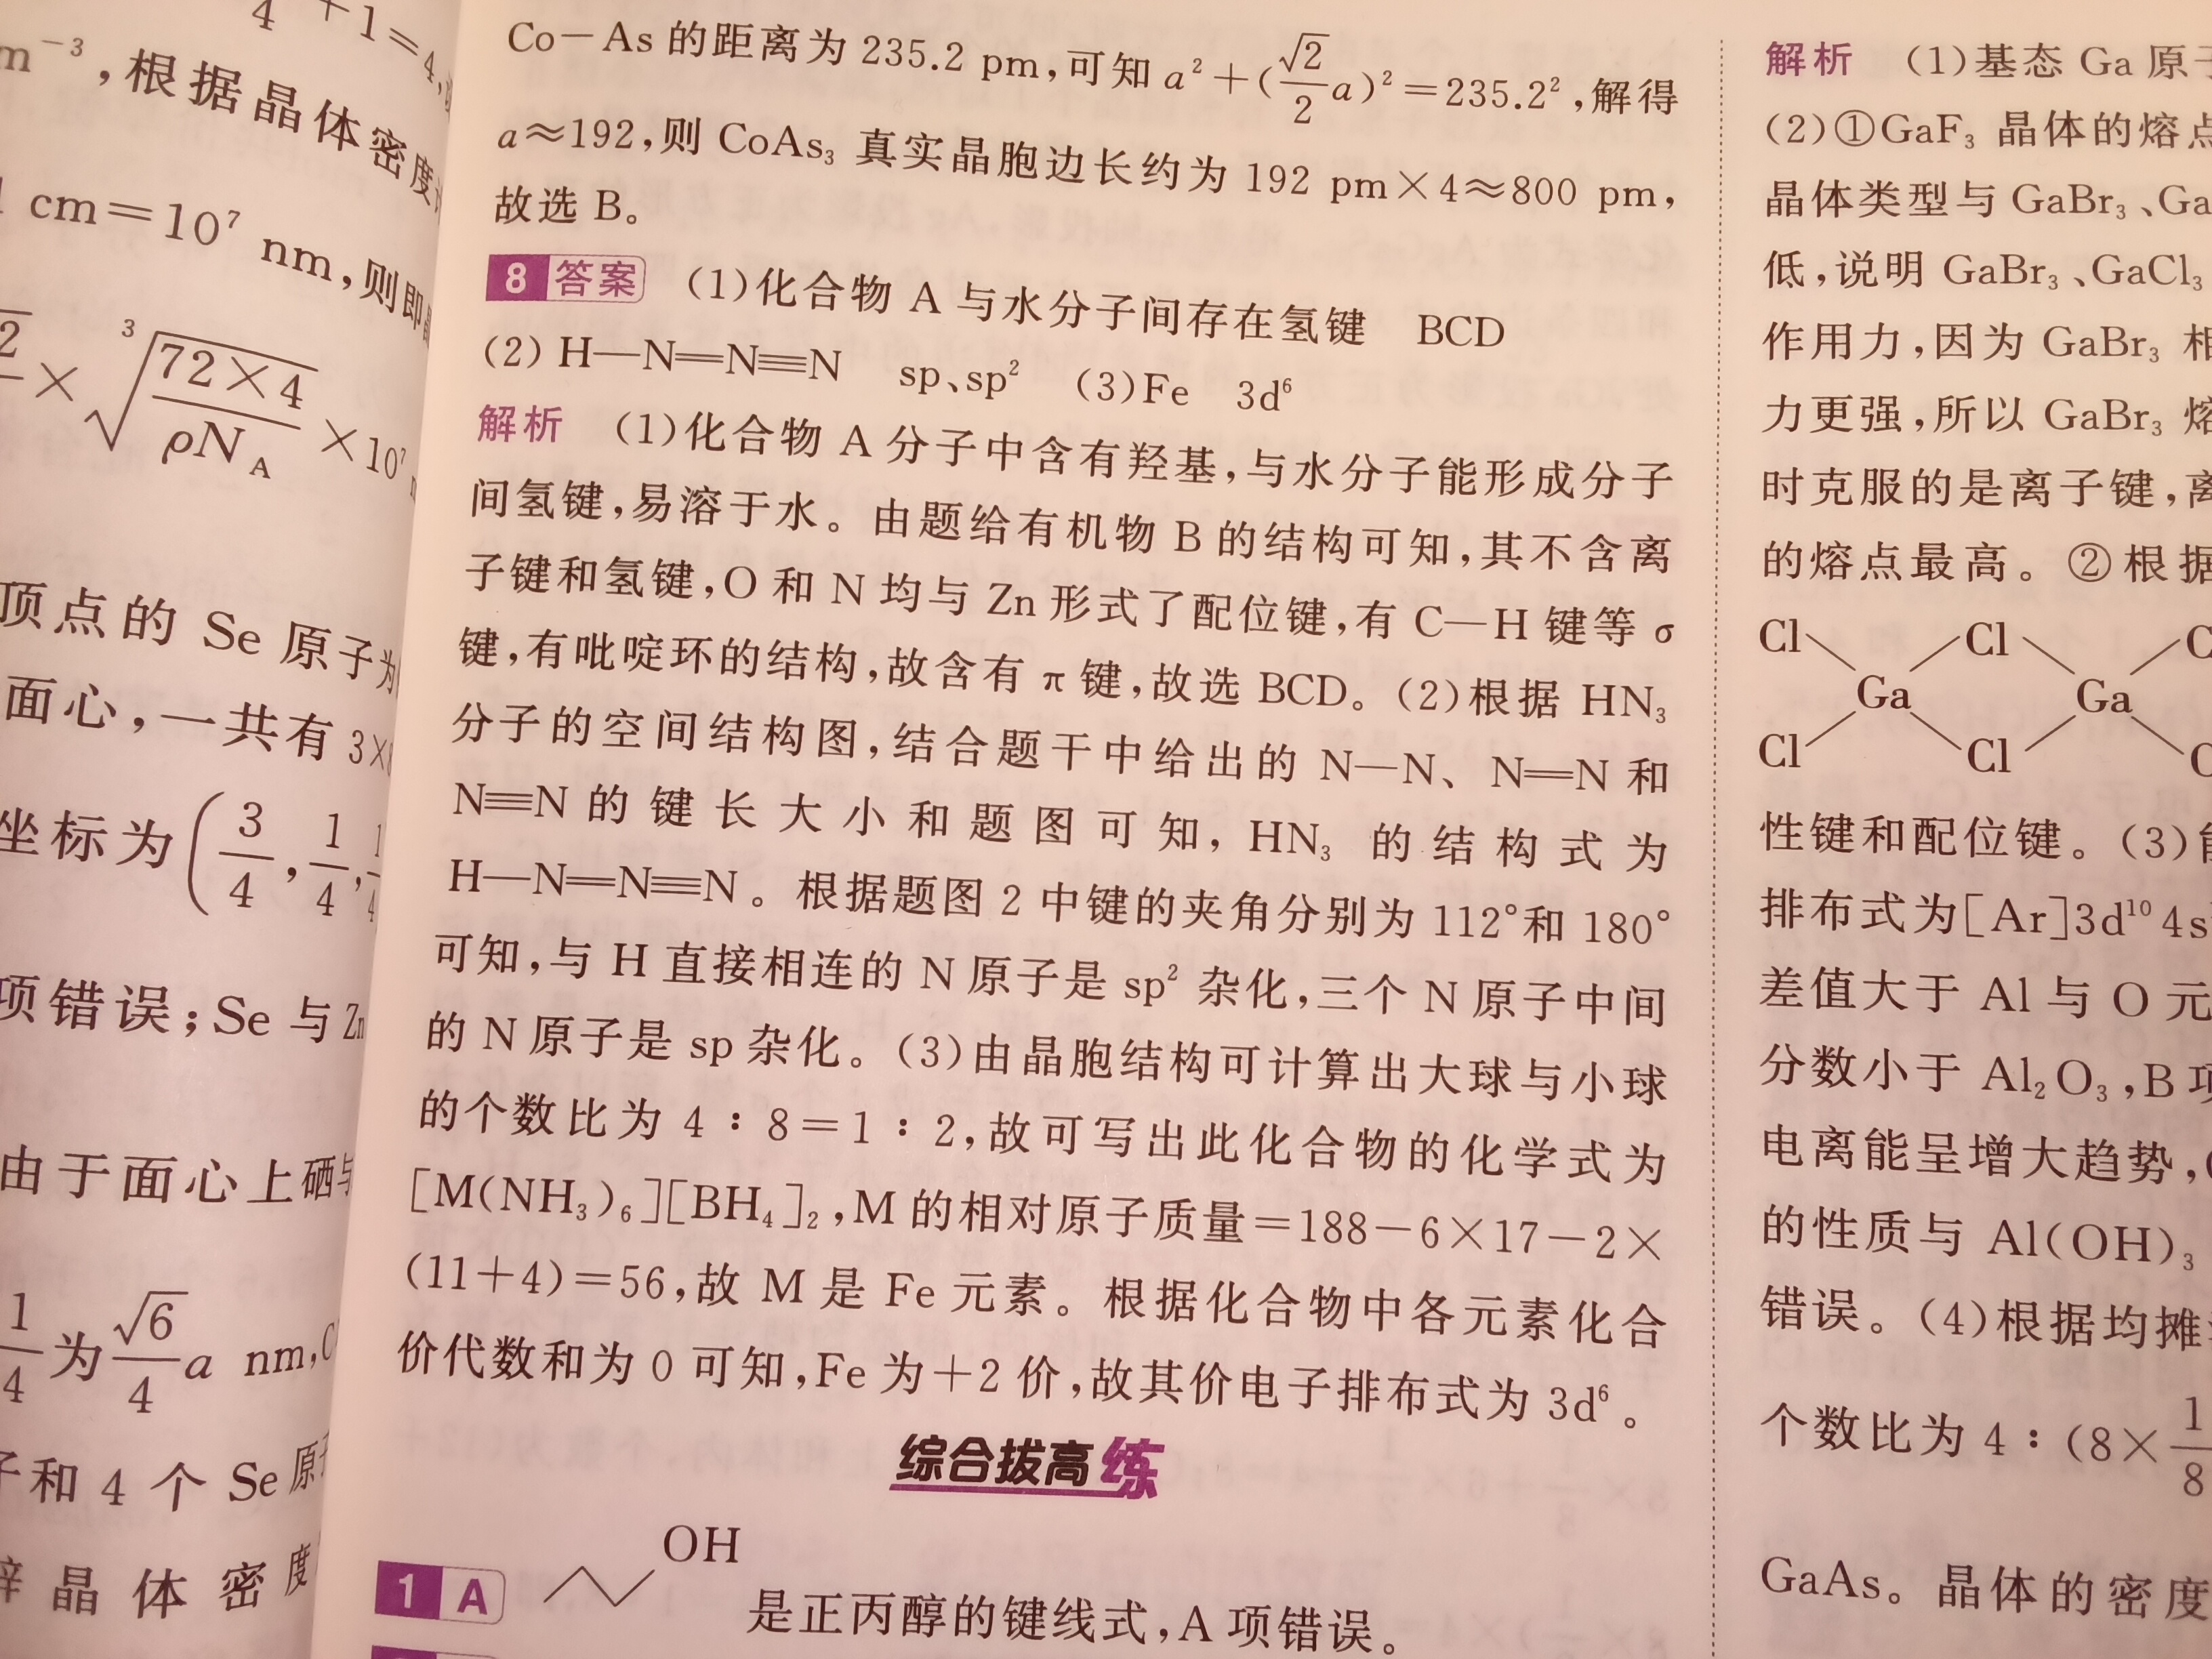 4 +1=4,
m⁻³,根据晶体密度
1 cm=10⁷ nm,则即
2 × ³√(72×4/ρN_A) ×10⁷
顶点的 Se 原子为
面心,一共有 3×
坐标为(3/4,1/4,1/4
项错误;Se 与 Zn
由于面心上硒与
1/4 为 √6/4 a nm,
子和 4 个 Se 原子
锌晶体密度
Co—As 的距离为 235.2 pm,可知 a²+(√2/2 a)²=235.2²,解得
a≈192,则 CoAs₃ 真实晶胞边长约为 192 pm×4≈800 pm,
故选 B。
8 答案 (1)化合物 A 与水分子间存在氢键 BCD
(2) H—N═N≡N sp、sp² (3)Fe 3d⁶
解析 (1)化合物 A 分子中含有羟基,与水分子能形成分子
间氢键,易溶于水。由题给有机物 B 的结构可知,其不含离
子键和氢键,O 和 N 均与 Zn 形式了配位键,有 C—H 键等 σ
键,有吡啶环的结构,故含有 π 键,故选 BCD。(2)根据 HN₃
分子的空间结构图,结合题干中给出的 N—N、N═N 和
N≡N 的键长大小和题图可知,HN₃ 的结构式为
H—N═N≡N。根据题图 2 中键的夹角分别为 112°和 180°
可知,与 H 直接相连的 N 原子是 sp² 杂化,三个 N 原子中间
的 N 原子是 sp 杂化。(3)由晶胞结构可计算出大球与小球
的个数比为 4∶8=1∶2,故可写出此化合物的化学式为
[M(NH₃)₆][BH₄]₂,M 的相对原子质量=188-6×17-2×
(11+4)=56,故 M 是 Fe 元素。根据化合物中各元素化合
价代数和为 0 可知,Fe 为+2 价,故其价电子排布式为 3d⁶。
综合拔高练
1 A OH 是正丙醇的键线式,A 项错误。
解析 (1)基态 Ga 原子
(2)①GaF₃ 晶体的熔点
晶体类型与 GaBr₃、Ga
低,说明 GaBr₃、GaCl₃
作用力,因为 GaBr₃ 相
力更强,所以 GaBr₃ 熔
时克服的是离子键,离
的熔点最高。②根据
Cl Cl C
Ga Ga
Cl Cl C
性键和配位键。(3)能
排布式为[Ar]3d¹⁰4s
差值大于 Al 与 O 元
分数小于 Al₂O₃,B 项
电离能呈增大趋势,
的性质与 Al(OH)₃
错误。(4)根据均摊
个数比为 4∶(8×1/8
GaAs。晶体的密度